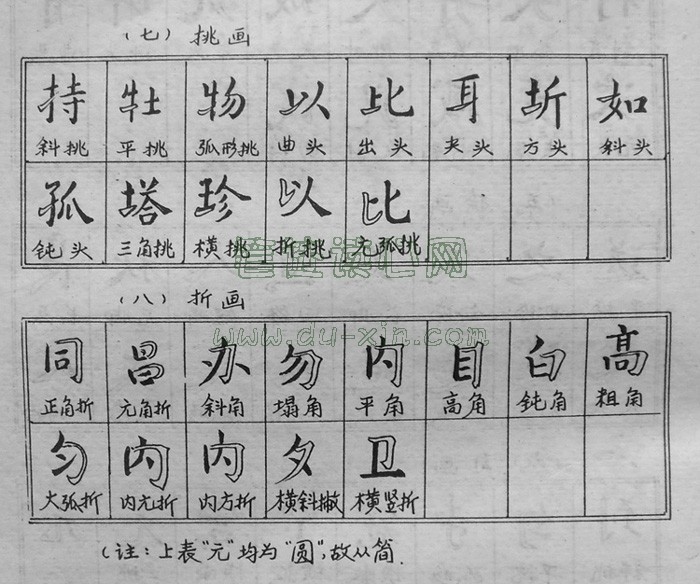 (七) 挑画
持 牡 物 以 比 耳 圻 如
斜挑 平挑 弧形挑 曲头 出头 夹头 方头 斜头
孤 塔 珍 以 比
钝头 三角挑 横挑 折挑 元弧挑
(八) 折画
www.du-xin.com
同 昌 办 勿 内 目 白 高
正角折 元角折 斜角 塌角 平角 高角 钝角 粗角
匀 内 内 夕 卫
大弧折 内元折 内方折 横斜撇 横竖折
(注：上表“元”均为“圆”，故从简.